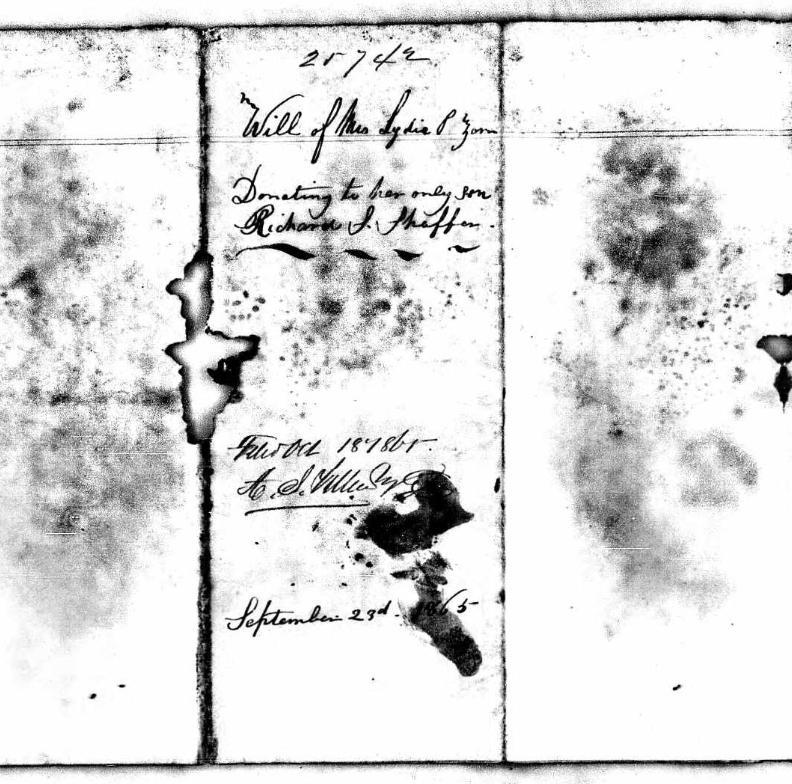 25742
Will of Mrs Lydia P Zorn
Donating to her only son
Richard J. Shaffer.
Filed Oct 18 1865.
September 23d. 1865